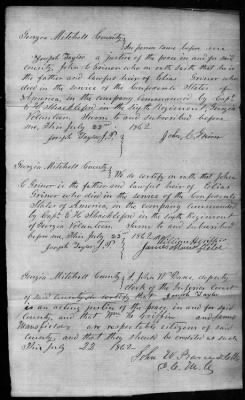 Georgia Mitchell County
In person came before me
Joseph Taylor a justice of the peace in and for said
county, John C. Grinor who on oath saith that he is
the father and lawful heir of Elias Grinor who
died in the service of the Confederate States of
America, in the company commanded by Capt
E H Shackelford in the Sixth Regiment, Georgia
Volunteers. Sworn to and subscribed before
me, This July 22nd 1862
Joseph Taylor, J.P. John C. Grinor
Georgia Mitchell County
We do certify on oath that John
C Grinor is the father and lawful heir of Elias
Grinor who died in the service of the Confederate
States of America, in the company commanded
by Capt E H Shackelford in the Sixth Regiment
of Georgia Volunteers Sworn to and subscribed
before me, this July 22nd 1862
Joseph Taylor, J.P. William H Griffin
James Mansfield
Georgia Mitchell County
I John W Pearce, deputy
clerk of the Inferior Court
of said county do certify that Joseph Taylor
is an acting justice of the peace in and for said
county, and that Wm H Griffin and James
Mansfield are respectable citizens of said
county, and that they should be credited as such
This July 22 1862
John W Pearce